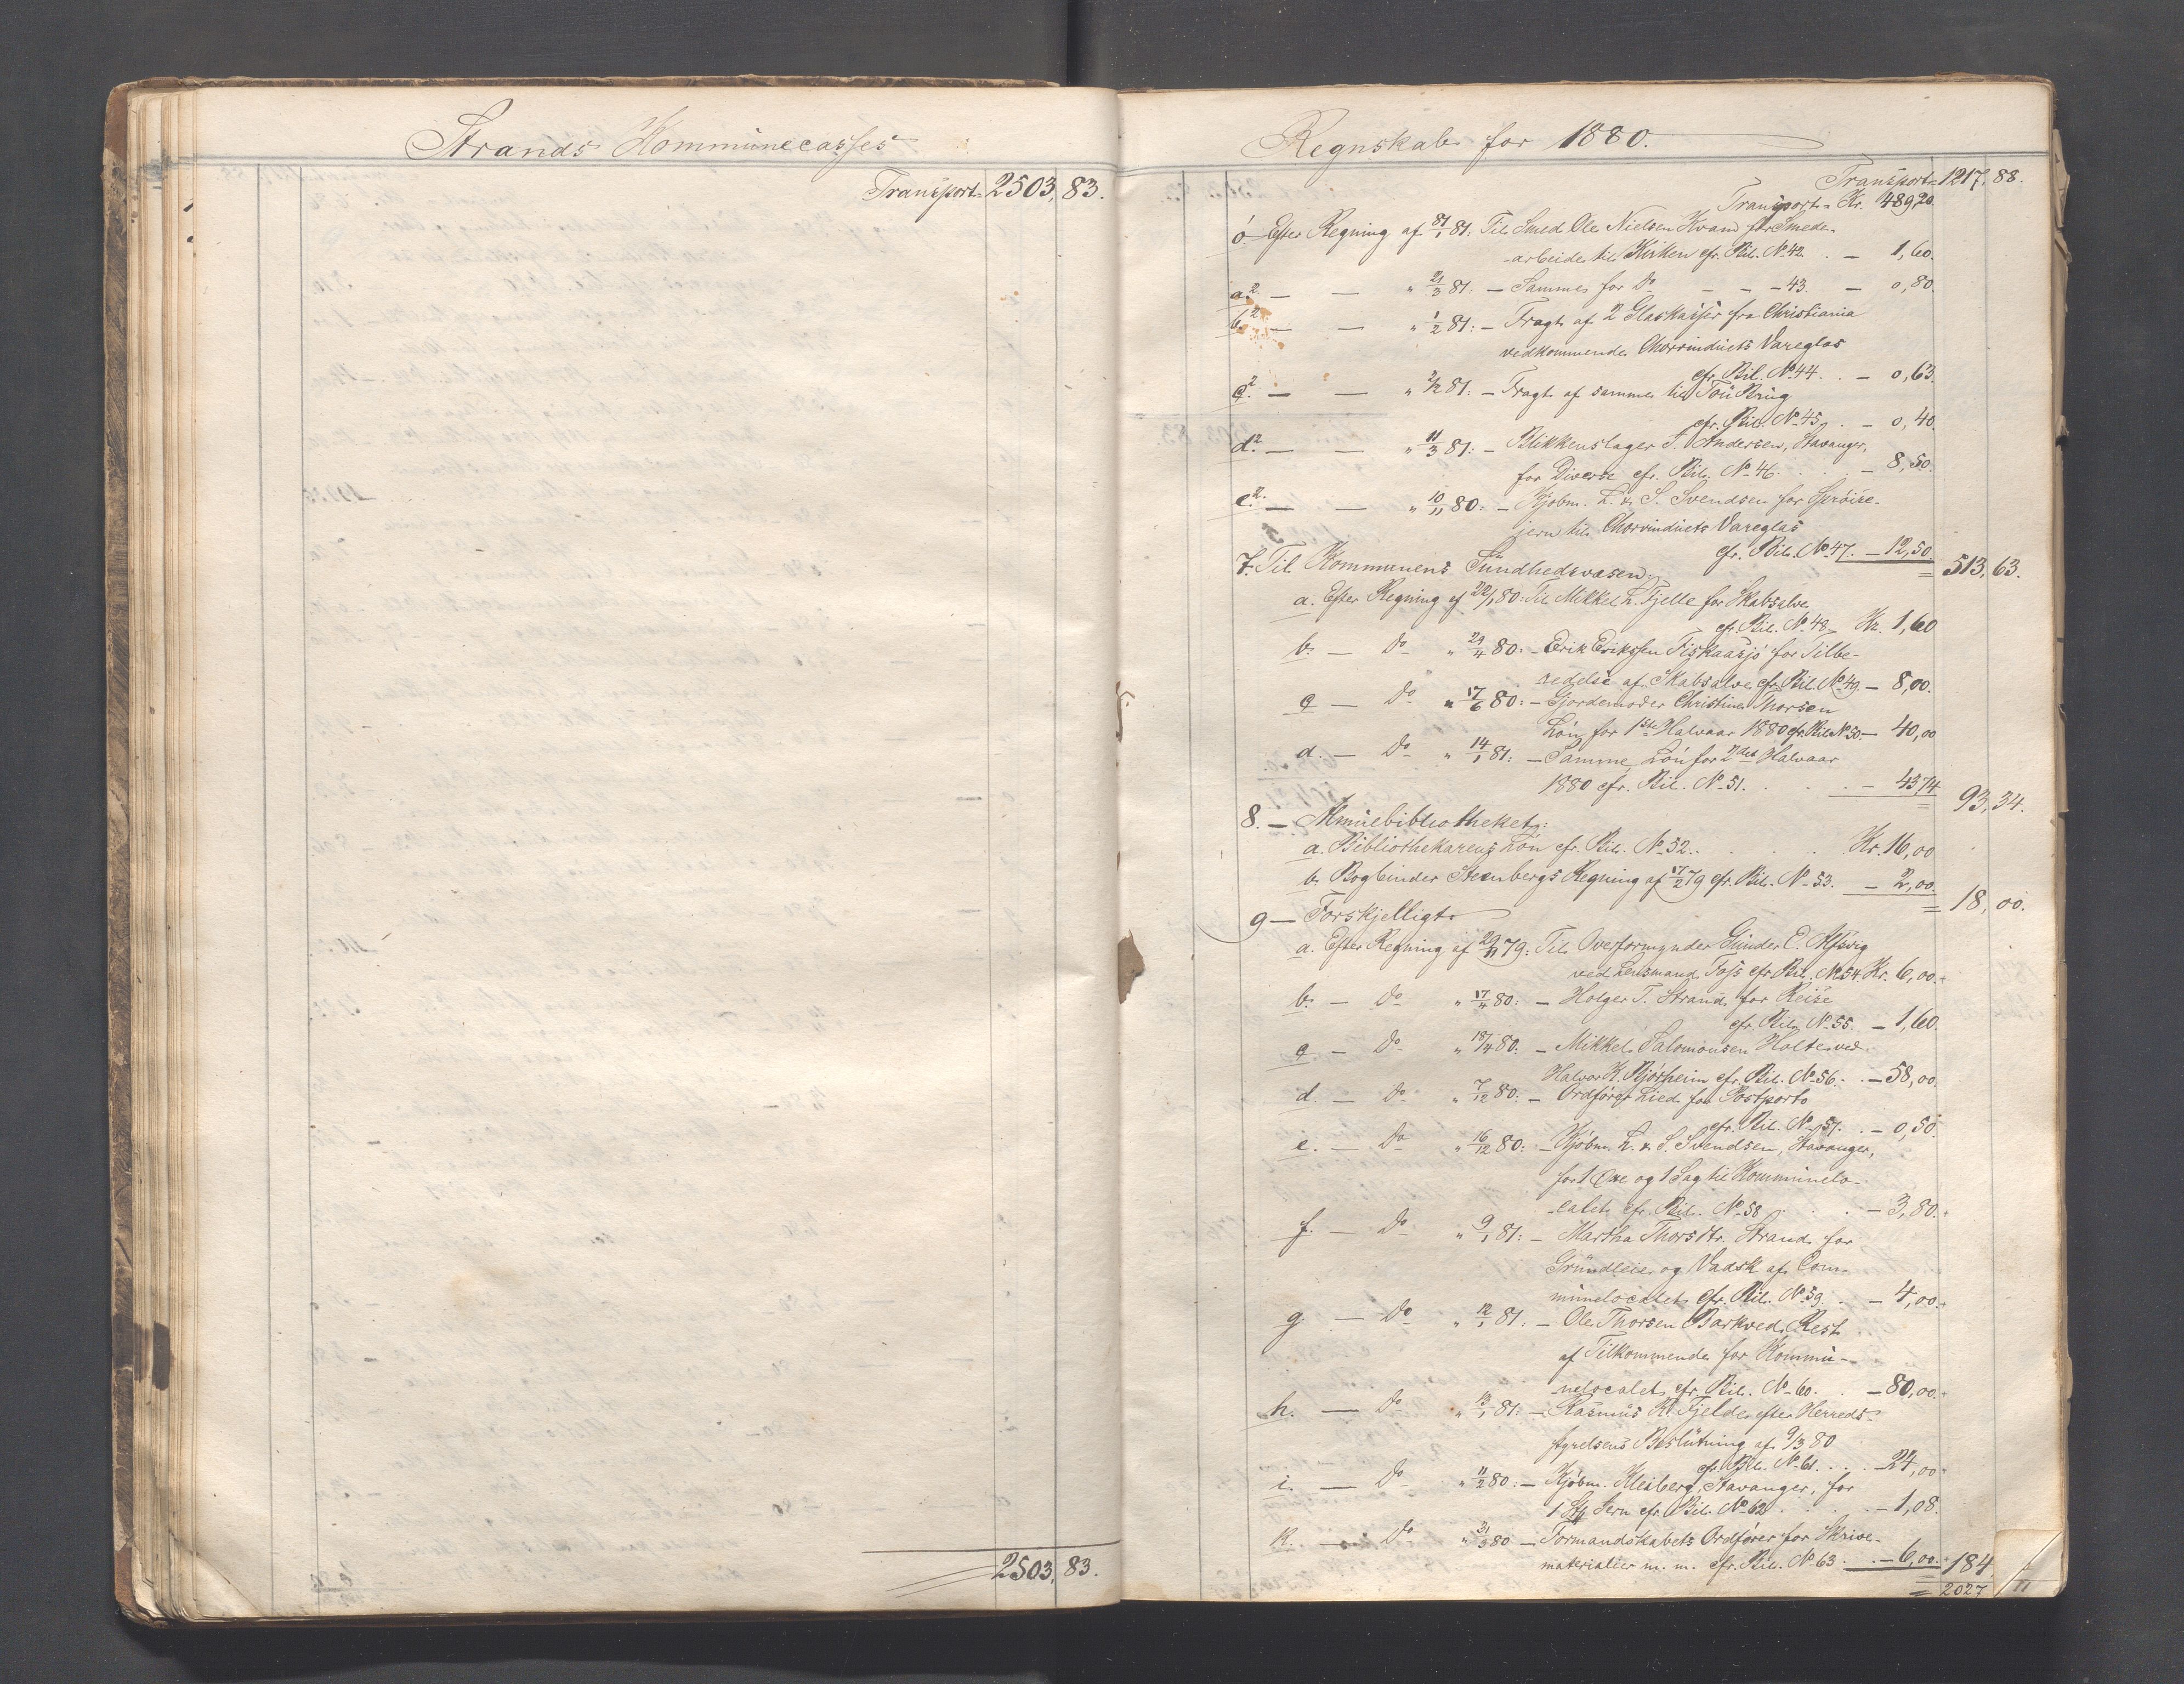 Strands Kommünecasses
Transport = 2503, 83.
2503, 83.
Regnskab for 1880.
Transport = 1217, 88.
Transport = Kr. 489,20.
ó. Efter Regning af 31/1 81: Til Smed Ole Nielsen Kvam for Smede-
-arbeide til Kirken cfr. Bil. No 42. . — 1,60.
a². — — " 21/3 81: — Samme for Do — — - 43. — 0,80.
b². — — " 1/2 81: — Fragt af 2 Glaskasser fra Christiania
vedkommende Chorvindüets Vareglas
cfr. Bil. No 44. . — 0,63.
c². — — " 2/2 81: — Fragt af samme til Töü Brüg
cfr. Bil. No 45. . — 0,40.
d². — — " 11/3 81: — Blikkenslager T. Andersen, Stavanger,
for Diverse cfr. Bil. No 46. . . . — 8,50.
e². — — " 10/11 80: — Kjøbm. L. & S. Svendsen for Sprösse-
jern til Chorvindüets Vareglas
cfr. Bil. No 47. — 12,50. = 513, 63.
7. Til Kommunens Sündhedsvæsen.
a. Efter Regning af 22/1 80: Til Mikkel L. Fjelle for Skabsalve
cfr. Bil. No 48. Kr. 1,60
b. — Do " 24/4 80: — Erik Eriksen Fiskaasjö for Tilbe-
redelse af Skabsalve cfr. Bil. No 49. — 8,00.
c — Do " 17/6 80: — Gjordemoder Christine Thorsen
Lön for 1ste Halvaar 1880 cfr. Bil. No 50. — 40,00
d. — Do " 14/1 81: — Samme, Lön for 2det Halvaar
1880 cfr. Bil. No 51. . . . — 43,74 = 93, 34.
8. — Almüebibliotheket:
a. Bibliothekarens Lön cfr. Bil. No 52. . . . . Kr. 16,00
b. Bogbinder Steenbergs Regning af 17/2 79 cfr. Bil. No 53. — 2,00. = 18, 00.
9 — Forskjelligt
a. Efter Regning af 29/11 79: Til Overformynder Günder E. Alfsvig
ved Lensmand Foss cfr. Bil. No 54. Kr. 6,00.
b. — Do " 17/4 80: — Holger T. Strand for Reise
cfr. Bil. No 55. — 1,60.
c — Do " 18/4 80: — Mikkel Salomonsen Holte ved
Halvor K. Bjørheim cfr. Bil. No 56. . — 58,00.
d. — Do " 7/12 80: — Ordfører Lied for Postporto
cfr. Bil. No 57. . — 0,50.
e. — Do " 16/12 80: — Kjøbm. L. & S. Svendsen, Stavanger,
for 1 Øxe og 1 Sag til Kommünelo-
-calet cfr. Bil. No 58 . . . — 3,80.
f. — Do " 9/1 81: — Martha Thorsdtr. Strand for
Gründleie og Vadsk af Com-
münelocalet cfr. Bil. No 59. . — 4,00.
g. — Do " 12/1 81: — Ole Thorsen Barkved Rest
af Tilkommende for Kommü-
-nelocalet cfr. Bil. No 60. . — 80,00.
h. — Do " 13/1 81: — Rasmüs K. Fjelde efter Herreds-
styrelsens Beslütning af 9/3 80
cfr. Bil. No 61. . . — 24,00
i. — Do " 11/2 80: — Kjøbm. Kleiberg, Stavanger, for
1 Jern cfr. Bil. No 62 . . . . — 1,08.
k. — Do " 31/3 80 — Formandskabets Ordfører for Skrive-
materialier m. m. cfr. Bil. No 63 . . — 6,00. = 184,
= 2027